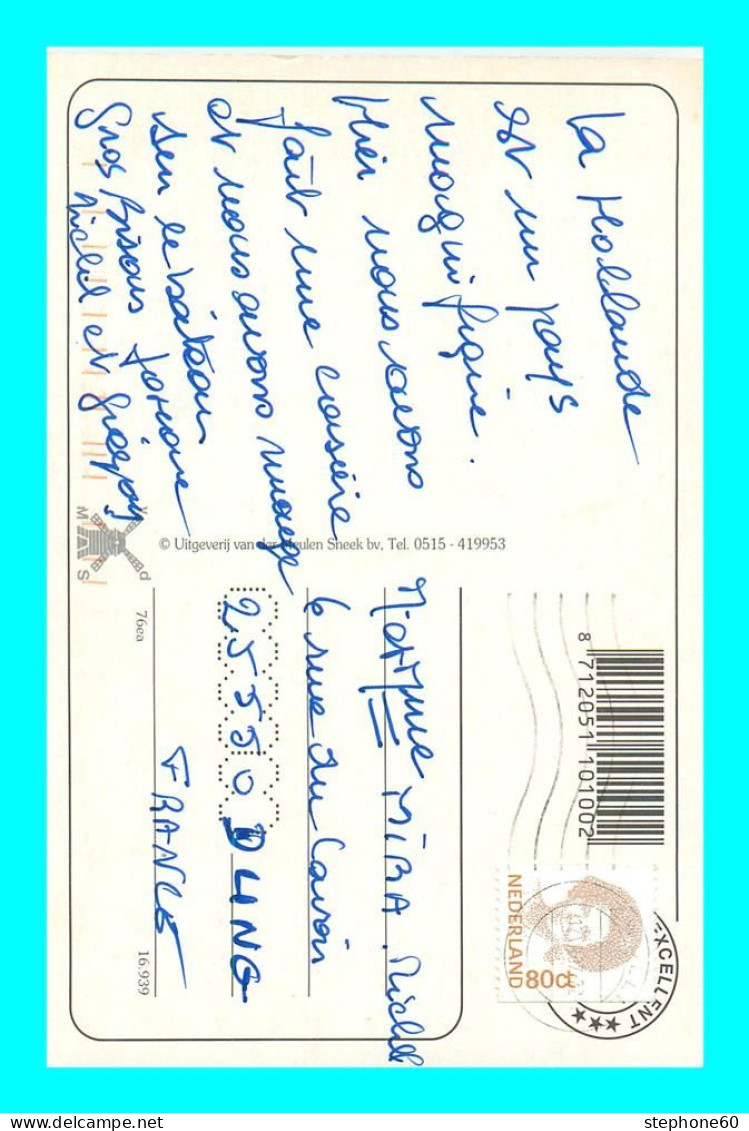 La Hollande
est un pays
magnifique.
Hier nous avons
fait une croisière
et nous avons mangé
sur le bateau
Gros bisous
Michel et
© Uitgeverij van der Meulen Sneek bv, Tel. 0515 - 419953
8 712051 101002
NEDERLAND
80ct
EXCELLENT
MIRA Michel
6 rue du Lavoir
25550 DUNG
FRANCE
76ea
16.939
stephone60